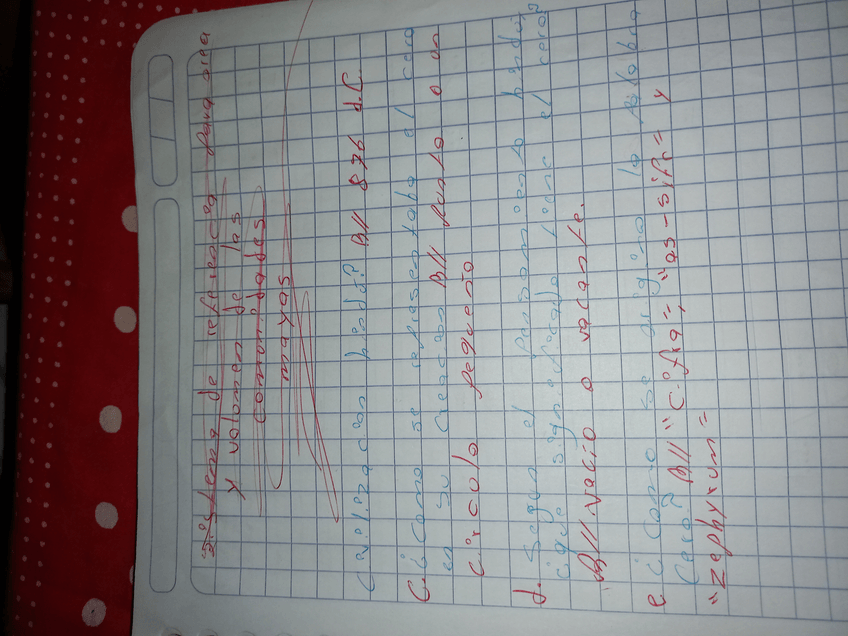 sistema de referencia para area
y volumen de las
comunidades
mayas
civilización hindú? R// 876 d.C.
C. ¿Como se representaba el cero
en su creación R// Punto o un
círculo pequeño
d. Segun el pensamiento hindú
¿que significado tiene el cero?
R// vacío o vacante.
e ¿Como se origino la palabra
Cero? R// "Cifra," "as-sifr" y
"zephyrum"